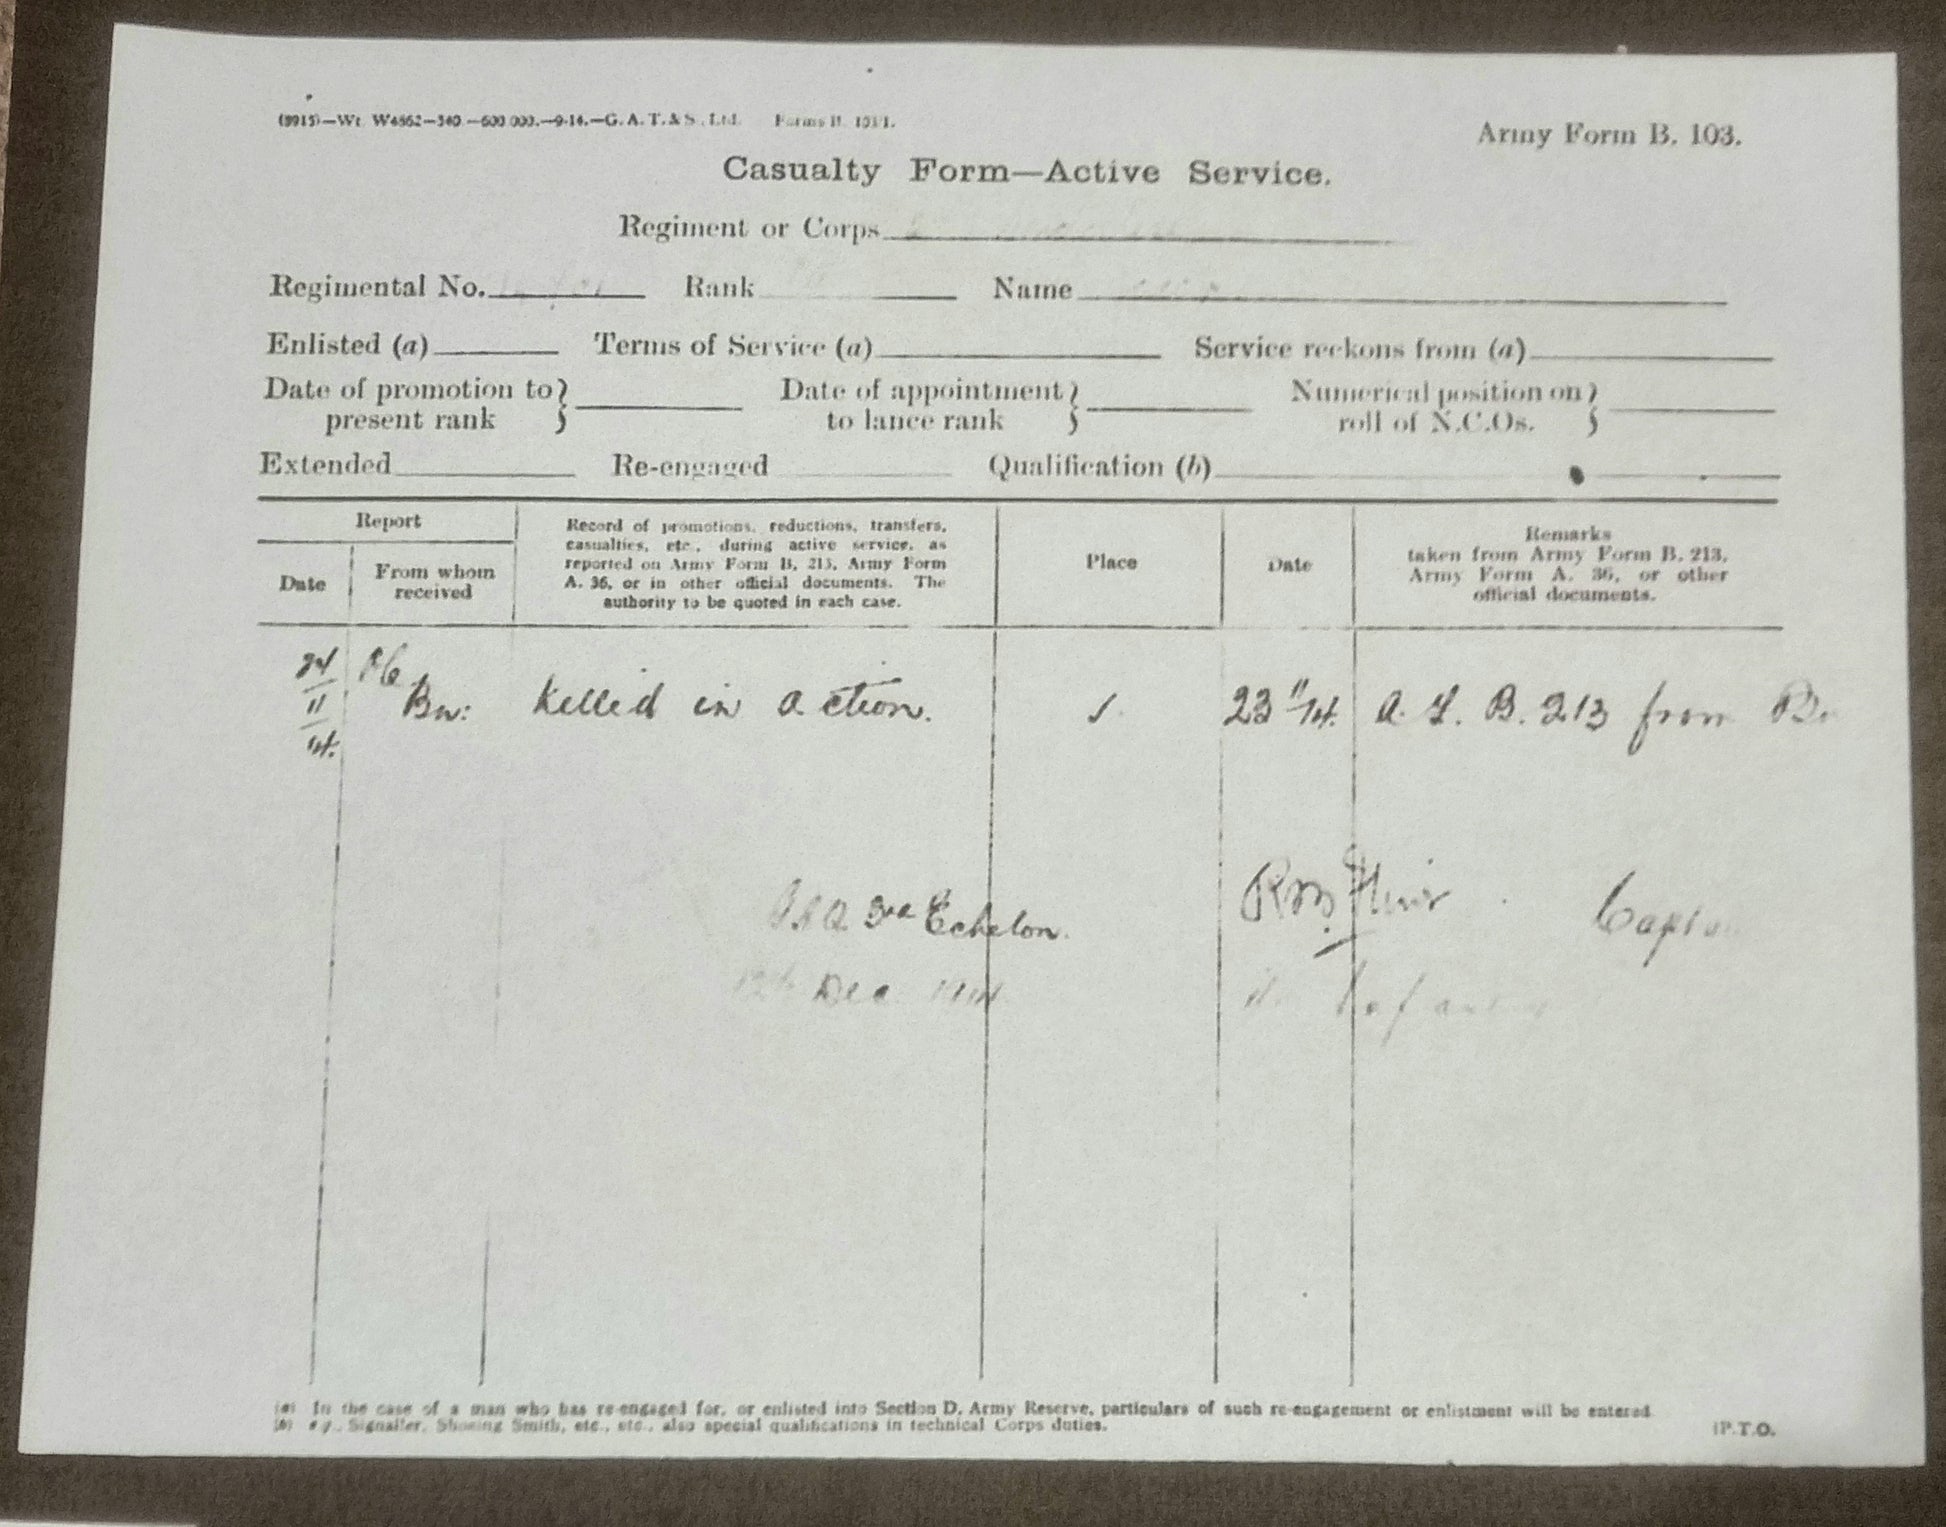 (8915)—Wt. W4862—340.—600,000.—9-14.—G. A. T. & S., Ltd. Forms B. 103/1.
Army Form B. 103.
Casualty Form—Active Service.
Regiment or Corps
Regimental No. Rank Name
Enlisted (a) Terms of Service (a) Service reckons from (a)
Date of promotion to } Date of appointment } Numerical position on }
present rank to lance rank roll of N.C.Os.
Extended Re-engaged Qualification (b)
Report
Date
From whom
received
Record of promotions, reductions, transfers,
casualties, etc., during active service, as
reported on Army Form B. 213, Army Form
A. 36, or in other official documents. The
authority to be quoted in each case.
Place
Date
Remarks
taken from Army Form B. 213,
Army Form A. 36, or other
official documents.
24/11/14. Bn: Killed in action. 23 11/14. A. F. B. 213 from Bn
3rd Echelon. Captn
Dec 1914
(a) In the case of a man who has re-engaged for, or enlisted into Section D, Army Reserve, particulars of such re-engagement or enlistment will be entered
(b) e.g., Signaller, Shoeing Smith, etc., etc., also special qualifications in technical Corps duties.
[P.T.O.